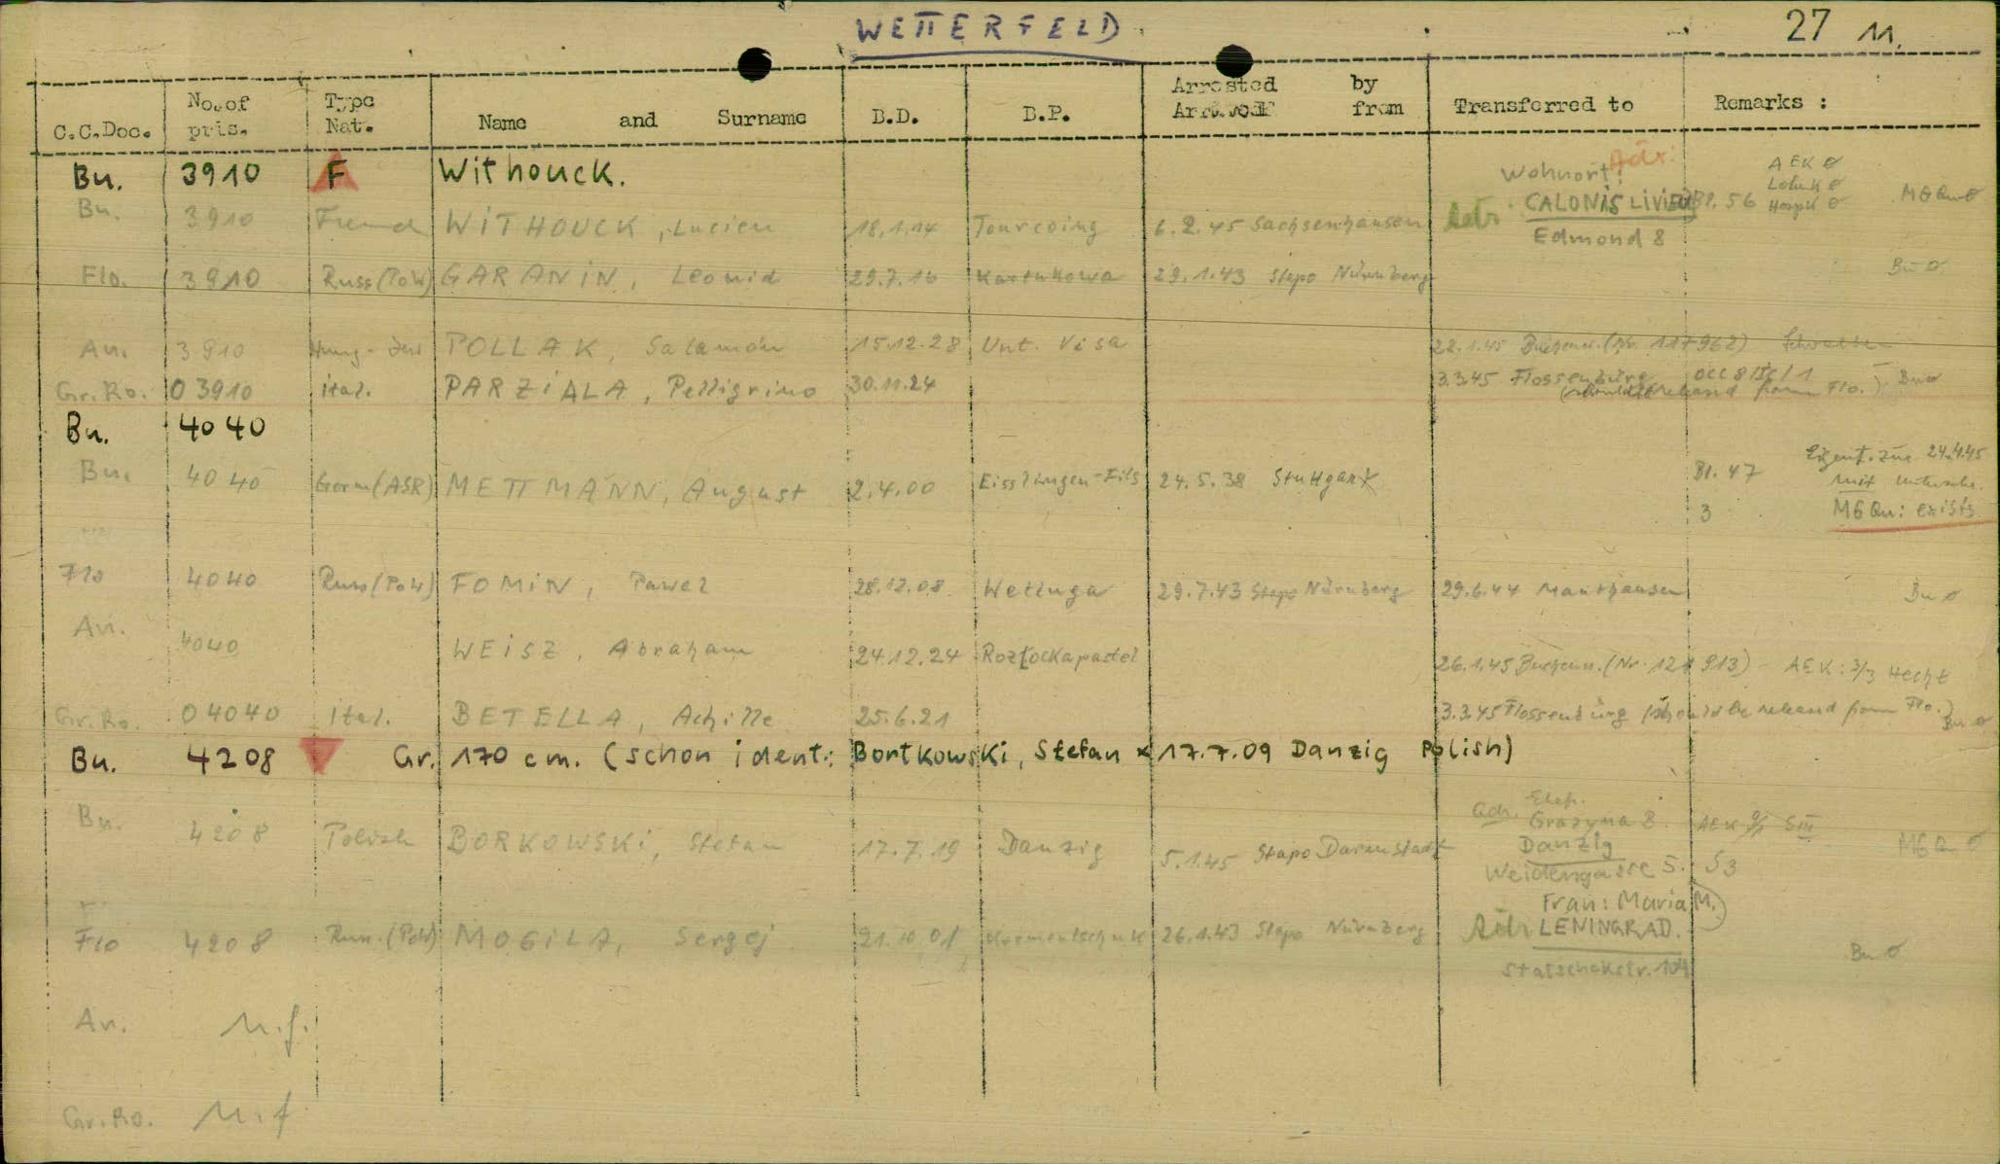 WETTERFELD 27 11.
C.C.Doc. No.of pris. Type Nat. Name and Surname B.D. B.P. Arrested by from Transferred to Remarks :
Bu. 3910 F Withouck.
Wohnort: Adr: AEK Ø
Bu. 3910 WITHOUCK, Lucien 18.1.14 Tourcoing 6.2.45 Sachsenhausen CALONIS LIVIED Bl. 56 MGQu Ø
Edmond 8
Flo. 3910 Russ(PoW) GARANIN, Leonid 29.7.16 29.1.43 Stapo Nürnberg Bu Ø
Au. 3910 Hung-Jew POLLAK, Salamon 15.12.28 Unt. Visa 22.1.45 Buchenw. (Nr. 117962)
Gr.Ro. 03910 ital. PARZIALA, Pelligrino 30.11.24 3.3.45 Flossenbürg released from Flo.) Bu Ø
Bu. 4040
Bu. 4040 Germ(ASR) METTMANN, August 2.4.00 Eisslingen-Fils 24.5.38 Stuttgart Bl. 47 24.4.45
mit
3 MGQu: exists
Flo 4040 Russ(PoW) FOMIN, Pawel 28.12.08 Wetluga 29.7.43 Stapo Nürnberg 29.6.44 Mauthausen Bu Ø
Au. 4040 WEISZ, Abraham 24.12.24 26.1.45 Buchenw. - AEK: 3/3 Hecht
Gr.Ro. 04040 ital. BETELLA, Achille 25.6.21 3.3.45 Flossenbürg (should be released from Flo.) Bu Ø
Bu. 4208 Gr. 170 cm. (schon ident.: Bortkowski, Stefan * 17.7.09 Danzig Polish)
Bu. 4208 Polish BORKOWSKI, Stefan 17.7.19 Danzig 5.1.45 Stapo Darmstadt Adr. Grazyna 8. SIII MGQu Ø
Danzig
Weidengasse 5. 53
Frau: Maria M.)
Flo 4208 Russ.(PoW) MOGILA, Sergej 21.10.01 Krementschuk 26.1.43 Stapo Nürnberg Adr LENINGRAD. Bu Ø
Statschekstr. 104
Au. n.f.
Gr.Ro. n.f